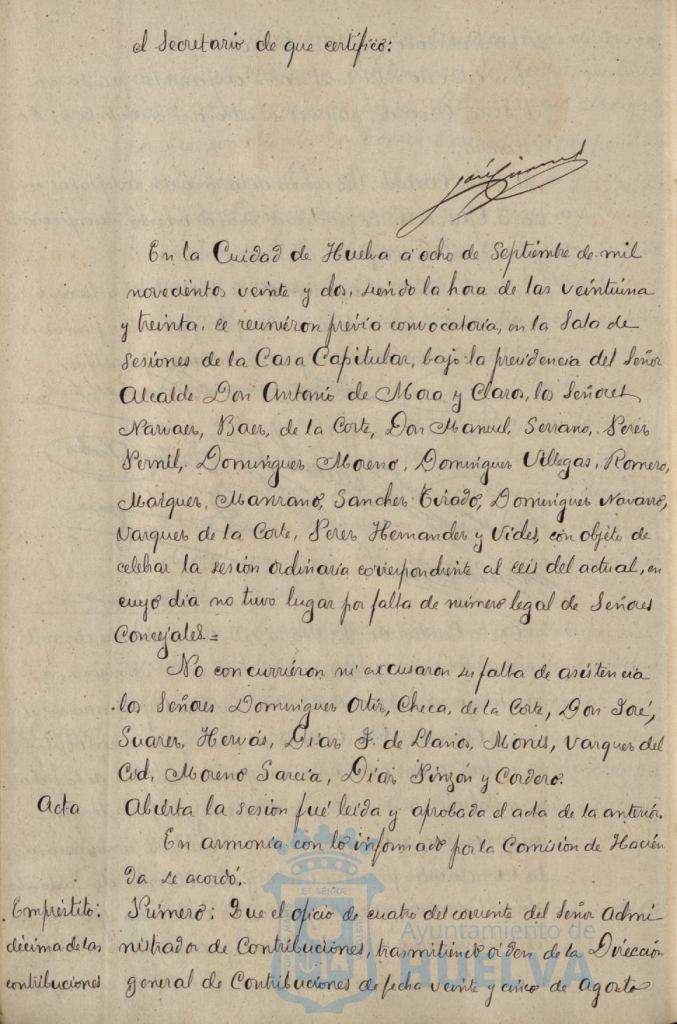 el Secretario de que certifico:
José
En la Cuidad de Huelva á ocho de Septiembre de mil
novecientos veinte y dos, siendo la hora de las veintiuna
y treinta, se reuniéron prévia convocatoria, en la Sala de
Sesiones de la Casa Capitular, bajo la presidencia del Señor
Alcalde Don Antonio de Mora y Claros, los Señores
Narvaes, Baes, de la Corte, Don Manuel, Serrano, Peres
Pernil, Domingues Moreno, Domingues Villegas, Romero,
Marques, Manzano, Sanches Tirado, Domingues Navarro,
Varques de la Corte, Peres Hernandes y Vides, con objeto de
celebrar la sesión ordinaria correspondiente al seis del actual, en
cuyo dia no tuvo lugar por falta de número legal de Señores
Concejales.=
No concurriéron ni excusaron su falta de asistencia
los Señores Domingues Ortis, Checa, de la Corte, Don José,
Suares, Hervás, Dias F. de Llanos, Monis, Varques del
Cid, Moreno Garcia, Dias Pinzón y Cordero.
Acta Abierta la sesión fué leida y aprobada el acta de la anterior.
En armonia con lo informado por la Comisión de Hacien
da se acordó:
Empréstito: Primero: Que el oficio de cuatro del corriente del Señor Admi
décima de las nistrador de Contribuciones, trasmitiendo órden de la Dirección
contribuciones general de Contribuciones de fecha veinte y cinco de Agosto
ET SENIOR
Ayuntamiento de
HUELVA